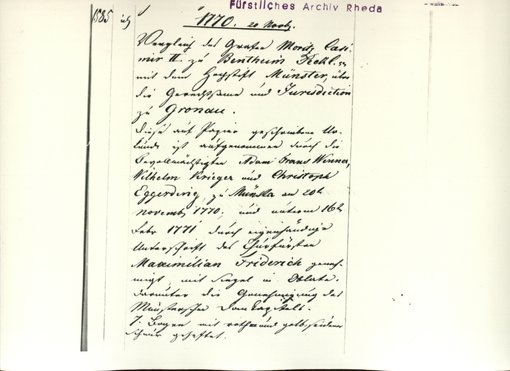 Fürstliches Archiv Rheda
1585
1770. 20 Novb.
Vergleich des Grafen Moritz Casi-
mir II. zu Bentheim Tekl.
mit dem Hochstift Münster, über
die Gerechtsame und Jurisdiction
zu Gronau.
Diese auf Papier geschriebene Ur-
kunde ist aufgenommen durch die
Bevollmächtigten Adam Franz Wenner,
Wilhelm Krieger und Christoph
Eggerding, zu Münster am 20t
novemb 1770; und 16t
Febr 1771 durch eigenhändige
Unterschrift des Churfürsten
Maximilian Friderich geneh-
migt, mit Siegel in Oblate.
darunter die Genehmigung des
Münsterschen Domkapitels.
7. Bogen mit roth und gelb seidener
Schnur geheftet.